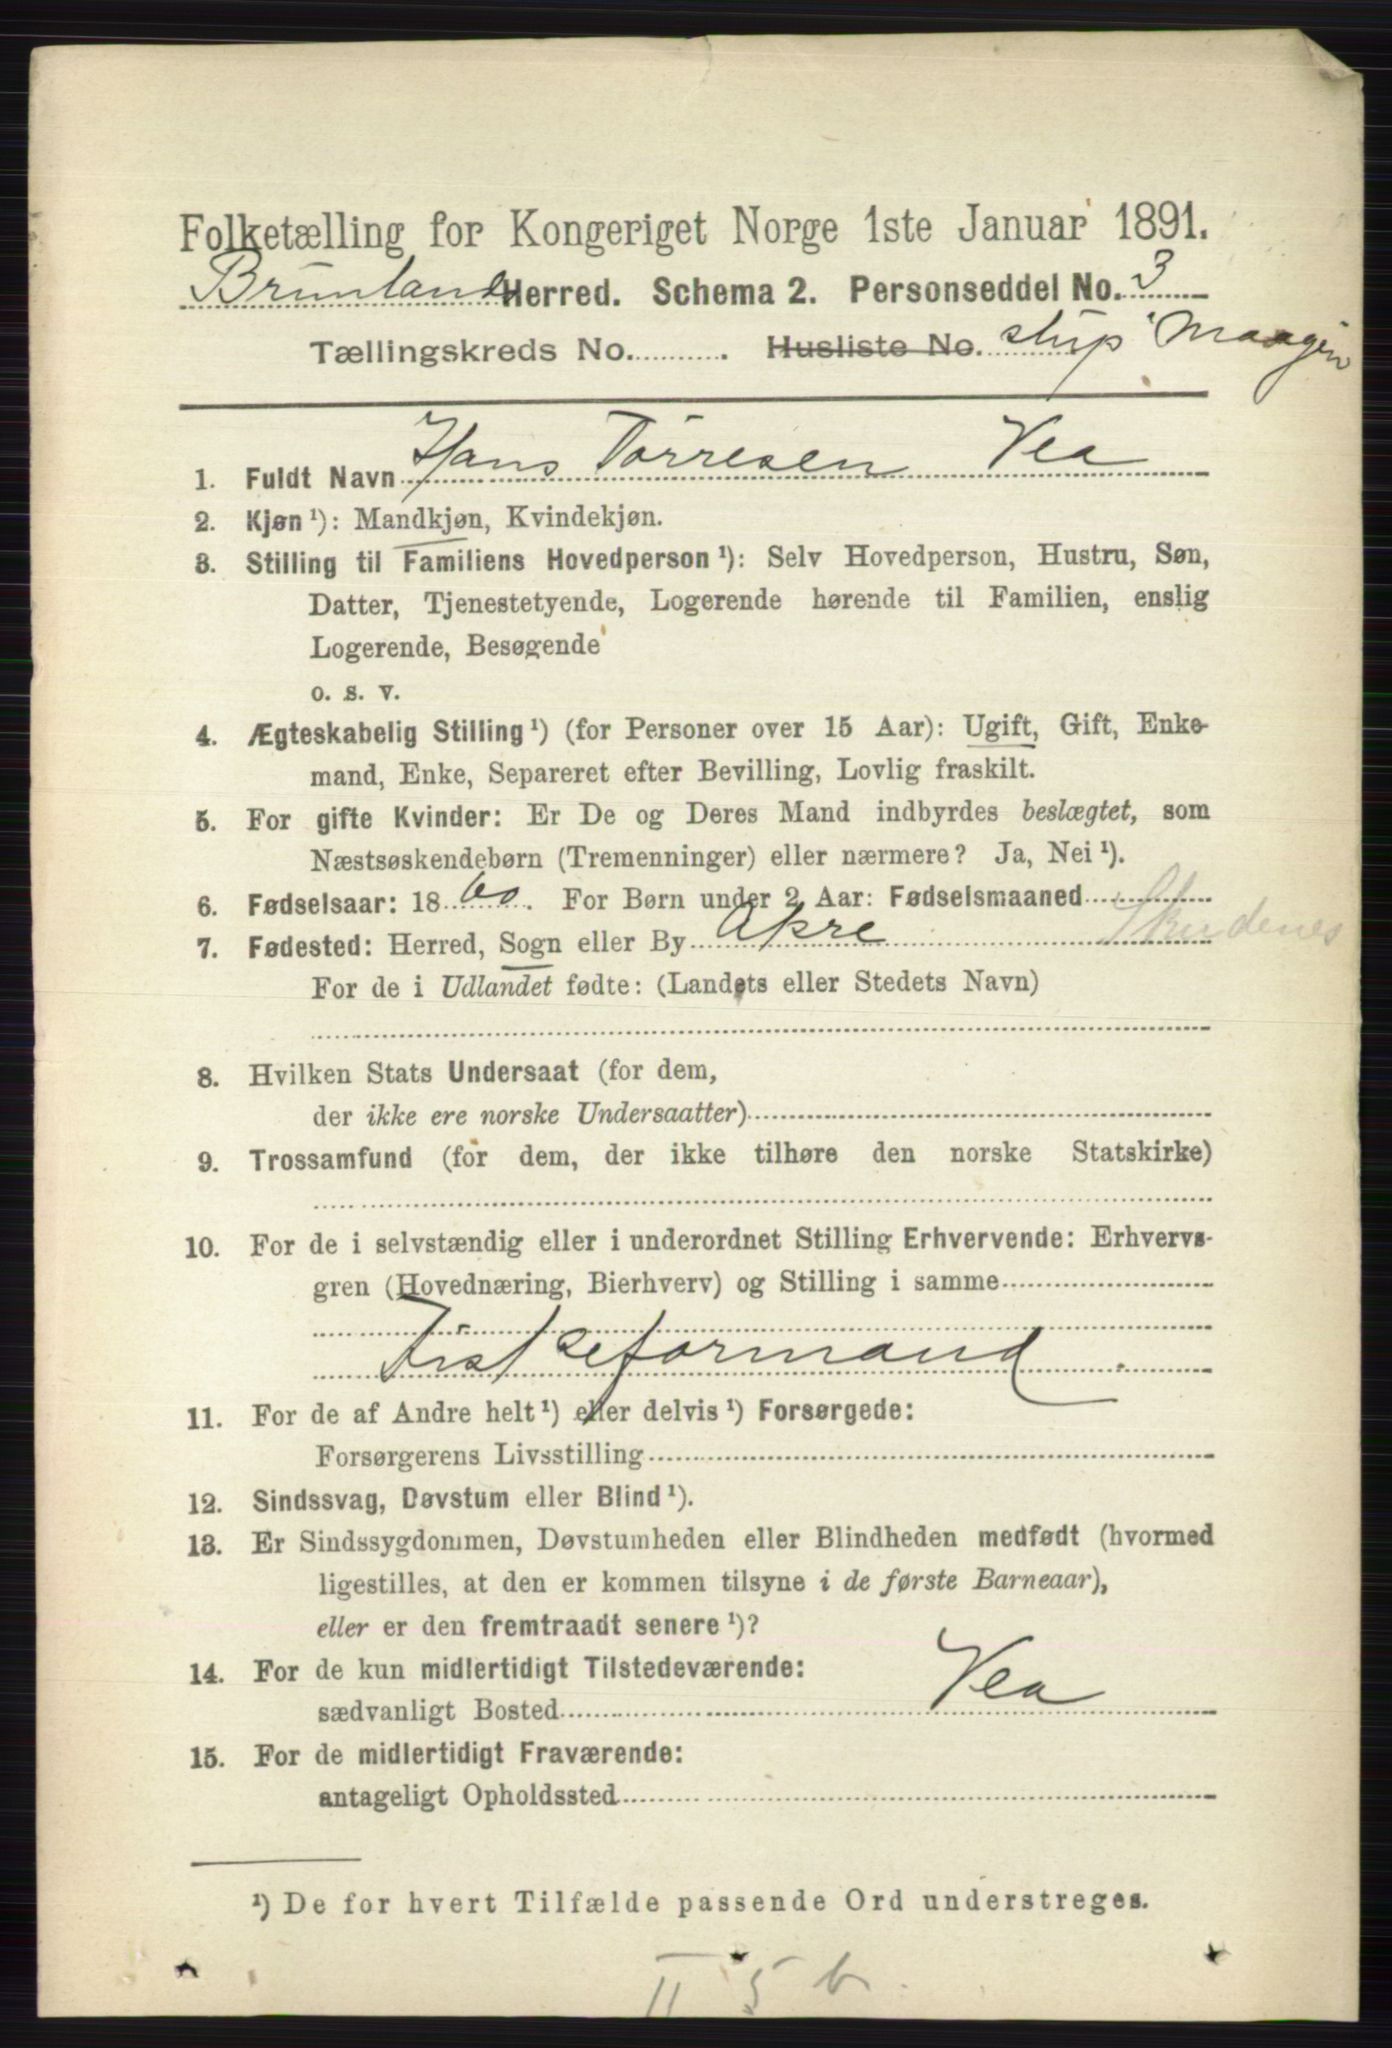 Folketælling for Kongeriget Norge 1ste Januar 1891.
Brunlanes Herred. Schema 2. Personseddel No. 3
Tællingskreds No. . Husliste No. slup "Maagen
1. Fuldt Navn Hans Tørresen Vea
2. Kjøn ¹): Mandkjøn, Kvindekjøn.
3. Stilling til Familiens Hovedperson ¹): Selv Hovedperson, Hustru, Søn,
Datter, Tjenestetyende, Logerende hørende til Familien, enslig
Logerende, Besøgende
o. s. v.
4. Ægteskabelig Stilling ¹) (for Personer over 15 Aar): Ugift, Gift, Enke-
mand, Enke, Separeret efter Bevilling, Lovlig fraskilt.
5. For gifte Kvinder: Er De og Deres Mand indbyrdes beslægtet, som
Næstsøskendebørn (Tremenninger) eller nærmere? Ja, Nei ¹).
6. Fødselsaar: 18 60. For Børn under 2 Aar: Fødselsmaaned
7. Fødested: Herred, Sogn eller By Akre Skudenes
For de i Udlandet fødte: (Landets eller Stedets Navn)
8. Hvilken Stats Undersaat (for dem,
der ikke ere norske Undersaatter)
9. Trossamfund (for dem, der ikke tilhøre den norske Statskirke)
10. For de i selvstændig eller i underordnet Stilling Erhvervende: Erhvervs-
gren (Hovednæring, Bierhverv) og Stilling i samme
Fiskeformand.
11. For de af Andre helt ¹) eller delvis ¹) Forsørgede:
Forsørgerens Livsstilling
12. Sindssvag, Døvstum eller Blind ¹).
13. Er Sindssygdommen, Døvstumheden eller Blindheden medfødt (hvormed
ligestilles, at den er kommen tilsyne i de første Barneaar),
eller er den fremtraadt senere ¹)?
14. For de kun midlertidigt Tilstedeværende:
sædvanligt Bosted Vea
15. For de midlertidigt Fraværende:
antageligt Opholdssted
¹) De for hvert Tilfælde passende Ord understreges.
II 5 b.